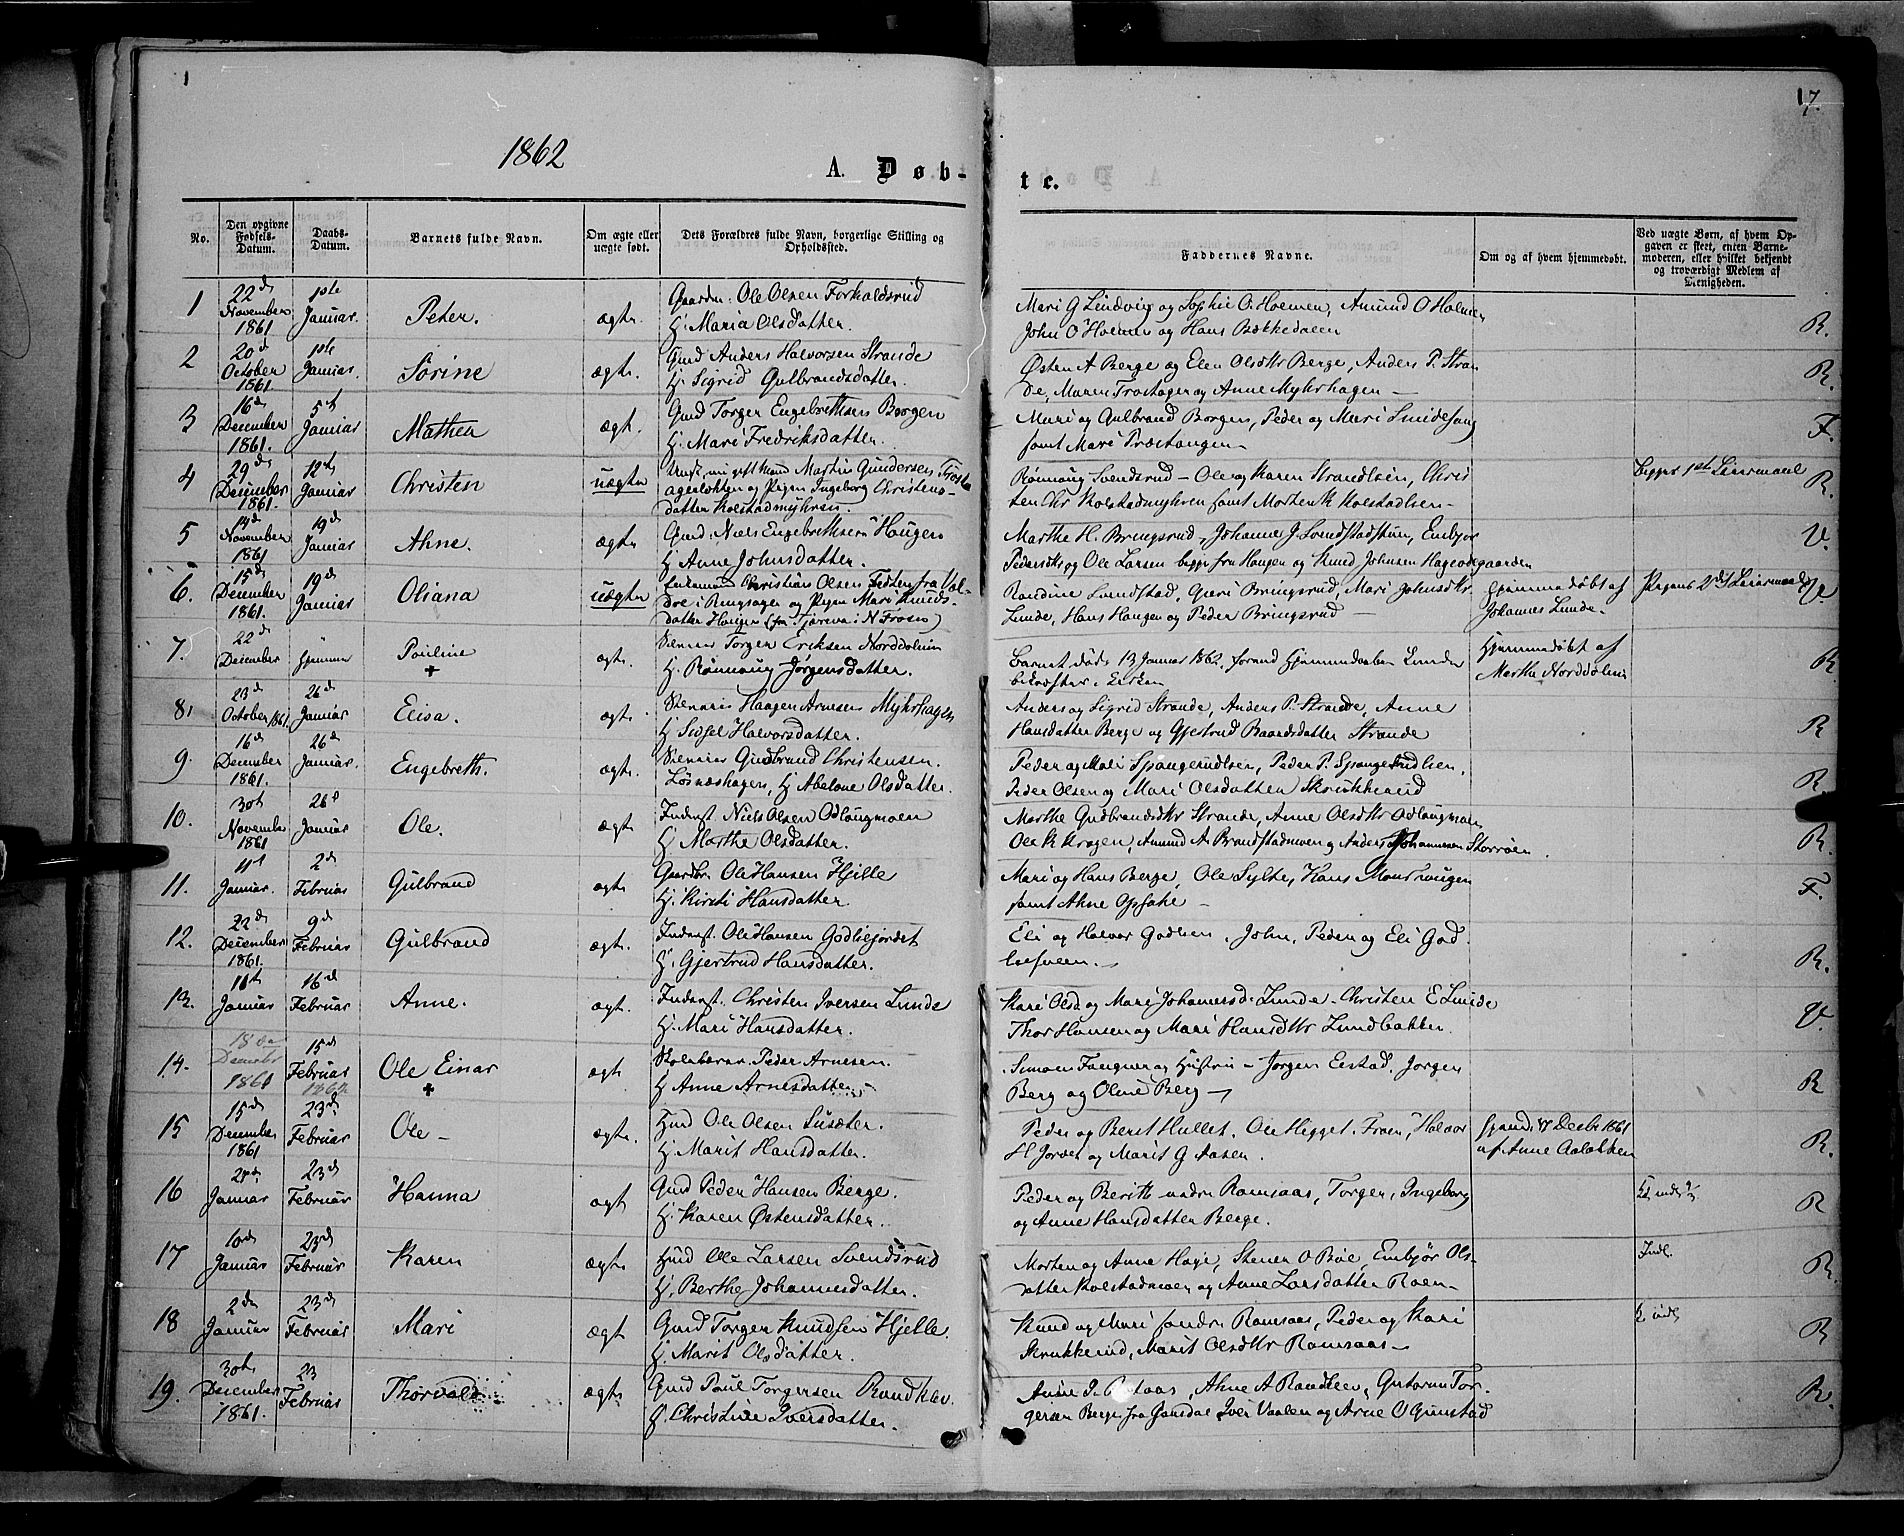 1
17.
1862
A. Døb-
te.
No.
Den opgivne Fødsels-Datum.
Daabs-Datum.
Barnets fulde Navn.
Om ægte eller uægte født.
Dets Forældres fulde Navn, borgerlige Stilling og Opholdssted.
Faddernes Navne.
Om og af hvem hjemmedøbt.
Ved uægte Børn, af hvem Opgaven er skeet, enten Barnemoderen, eller hvilket bekjendt og troværdigt Medlem af Menigheden.
1 22de November 1861 1ste Januar Peter. ægte
Ole Olsen
H. Maria Olsdatter.
Mari G Lindvig og Sophie O. Holmen, Amund O Holmen
John O Holmen og Hans Bækkedalen
R.
2 20de October 1861 1ste Januar Sørine ægte.
Gmd Anders Halvorsen Strande
H. Sigrid Gulbrandsdatter.
Østen A Berge og Elen Olsdtr Berge, Anders P. Stran
de, Maren og Anne Myhrhagen —
R.
3 16de December 1861. 5te Januar Mathea ægt.
Gmd Torger Engebrethsen Borgen
H. Mari Fredriksdatter.
Mari og Gulbrand Borgen, Peder og Mari
samt Mari Præstangen —
F.
4 29de December 1861. 12te Januar Christen uægte
Martin Gundersen
og Pigen Ingeborg Christens-
datter Kolstadmyhren.
Rønnaug Svendsrud — Ole og Karen Strandlien, Chris
ten Chr Kolstadmyhren samt Morten K Kolstadlien —
begges 1ste Leiermaal
R.
5 14de November 1861 19de Januar Ahne. ægte
Gmd. Niels Engebrethsen Haugen
H Anne Johnsdatter.
Marthe H. Bringsrud, Johanne J. Embjør
Pedersdtr og Ole Larsen begge fra Haugen og Knud Johnsen
V.
6. 15de December 1861. 19de Januar Oliana uægte
Christian Olsen fra Vol-
i Ringsager og Pigen Mari Knuds-
datter Haugen
Rondine Lundstad, Bringsrud, Mari Johnsdtr
Lunde, Hans Haugen og Peder Bringsrud —
Hjemmedøbt af
Johannes Lunde.
Pigens 2det Leiermaal
7. 22de December Hjemme Pauline + ægte.
Torger Eriksen
H. Rønnaug Jørgensdatter.
Barnet døde 13 Januar 1862, forend
i Kirken
Hjemmedøbt af
Marthe
R
8. 23de October 1861 26de Januar Elisa. ægte
Haagen Arnesen Myhrhagen
H Sidsel Halvorsdatter.
Anders og Sigrid Strande, Anders P. Strande, Anne
Hansdatter Berge og Gjertrud Baardsdatter Strande
R
9. 16de December 1861. 26de Januar. Engebreth. ægte
Gudbrand Christensen
Løsnæshagen, H. Abelone Olsdatter.
Peder og Mali Spangrudlien, Peder P. Spangrudlien,
Peder Olsen og Mari Olsdatter Skrukkerud
R.
10. 30te November 1861 26de Januar Ole. ægte
Inderst. Niels Olsen Odlaugmoen
H Marthe Olsdatter.
Marthe Gudbrandsdtr Strande, Anne Olsdtr Odlaugmoen
Ole K Kragen, Amund A. Brandstadmoen og Anders Johannesen Storroen.
R.
11. 11te Januar. 2de Februar Gulbrand ægte
Ole Hansen Hjelle
H. Kirsti Hansdatter.
Mari og Hans Berge, Ole Sylte, Hans
samt Ahne Opsahl —
F.
12. 22de December 1861. 9de Februar Gulbrand ægte.
Inderst. Ole Hansen
H. Gjertrud Hansdatter.
Eli og Halvor Godlien, John, Peder og Eli God
R.
13. 11te Januar 16de Februar Anne. ægte
Inderst. Christen Iversen Lunde
H. Mari Hansdatter.
Kari Olsd og Mari Johannesd. Lunde. Christen E Lunde
Thor Hansen og Mari Hansdtr Lundbakken.
V.
14. 18de Decembr 1861 15de Februar 1862 Ole Einar + ægte
Skolelærer Peder Arnesen.
H Anne Arnesdatter —
Simen Fangner og Hustru — Jørgen Jørgen
Berg og Oline Berg —
R
15 15de December 1861 23de Februar Ole — ægte.
Gmd Ole Olsen Lusæter.
H. Marit Hansdatter.
Peder og Berit Hullet. Ole Halvor
H Jorvet og Marit G Aasen.
Decbr 1861
af Anne
R.
16 Januar 23de Februar Hanna ægte
Gmd Peder Hansen Berge.
H. Karen Østensdatter.
Peder og Berith Ramsaas, Torger, Ingeborg
og Anne Hansdatter Berge.
R
17 10de Januar 23de Februar Karen ægte.
Gmd Ole Larsen Svendsrud
H. Berthe Johannesdatter.
Morten og Anne Hage, Stener O Bøe, Embjør Ols-
datter Kolstadmoen og Anne Larsdatter Roen —
Indl.
R.
18 2de Januar 23de Februar Mari ægte
Gmd Torger Knudsen Hjelle.
H. Marit Olsdatter.
Knud og Mari søndre Ramsaas, Peder og Kari
Skrukkerud, Marit Olsdtr Ramsaas —
R
19. 30te December 1861. 23 Februar Thorvald ægte
Gmd Paul Torgersen Randklev.
H. Christine Iversdatter.
Ahne A Randklev, Guttorm Tor-
gersen Berge fra Gausdal Iver Vaalen og Arne O
R.